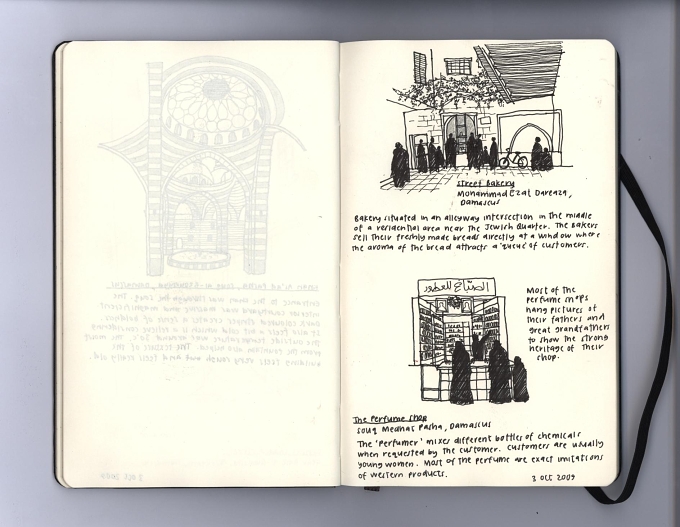 Street Bakery
Mohammad Ezat Dareaza,
Damascus
Bakery situated in an alleyway intersection in the middle
of a residential area near the Jewish Quarter. The bakers
sell their freshly made breads directly at a window where
the aroma of the bread attracts a queue of customers.
الصبّاغ للعطور
Most of the
perfume shops
hang pictures of
their fathers and
great grandfathers
to show the strong
heritage of their
shop.
The Perfume Shop
Souq Medhat Pasha, Damascus
The 'perfumer' mixes different bottles of chemicals
when requested by the customer. Customers are usually
young women. Most of the perfume are exact imitations
of western products.
3 Oct 2009